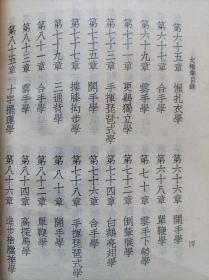 太極拳目錄
四
第六十五章 懶扎衣學 第六十六章 開手學
第六十七章 合手學 第六十八章 單鞭學
第六十九章 雲手學 第七十章 雲手下勢學
第七十一章 更鷄獨立學 第七十二章 倒輦猴學
第七十三章 手揮琵琶式學 第七十四章 白鶴亮翅學
第七十五章 開手學 第七十六章 合手學
第七十七章 摟膝拗步學 第七十八章 手揮琵琶式學
第七十九章 三通背學 第八十章 開手學
第八十一章 合手學 第八十二章 單鞭學
第八十三章 雲手學 第八十四章 高探馬學
第八十五章 十字擺蓮學 第八十六章 進步指襠捶學